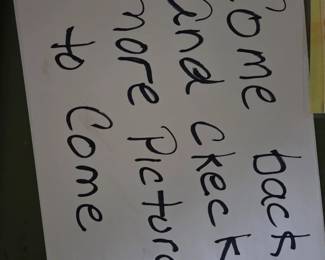 Come back
and ckeck
more Pictur
to Come